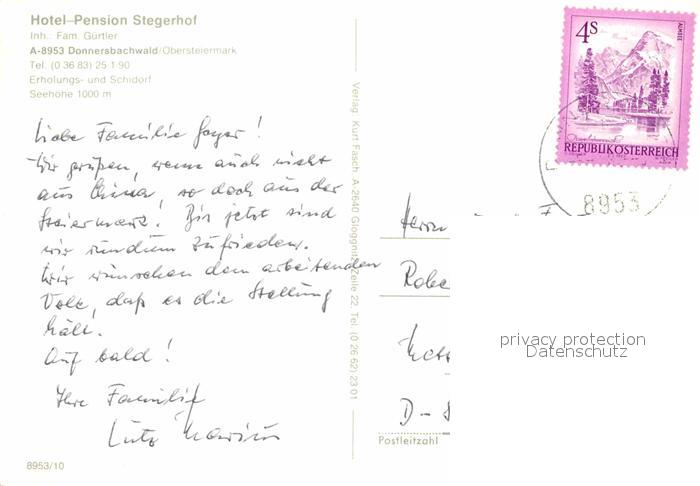 Hotel-Pension Stegerhof
Inh. Fam. Gürtler
A-8953 Donnersbachwald/Obersteiermark
Tel. (0 36 83) 25 1 90
Erholungs- und Schidorf
Seehöhe 1000 m
Liebe Familie Geyer!
Wir grüßen, wenn auch nicht
aus China, so doch aus der
Steiermark. Bis jetzt sind
wir rundum zufrieden.
Wir wünschen dem arbeitenden
Volk, daß es die Stellung
hält.
Auf bald!
Ihre Familie
Lutz
8953/10
Verlag Kurt Fasch, A-2640 Gloggnitz, Zeile 22, Tel. (0 26 62) 23 01
4S
ALMSEE
REPUBLIK ÖSTERREICH
8953
Herrn
Robe
D-
Postleitzahl
privacy protection
Datenschutz